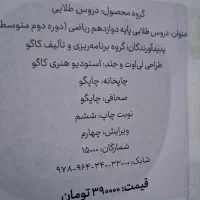 گروه محصول: دروس طلایی
عنوان: دروس طلایی پایه دوازدهم ریاضی (دوره دوم متوسط
پدیدآورندگان: گروه برنامه‌ریزی و تألیف کاگو
طراحی لی‌اوت و جلد: استودیو هنری کاگو
چاپخانه: چاپگو
صحافی: چاپگو
نوبت چاپ: ششم
ویرایش: چهارم
شمارگان: ۱۵۰۰۰
شابک: ۹۷۸-۹۶۴-۳۴۰-۳۳۰-۰
قیمت: ۳۹۰۰۰۰ تومان